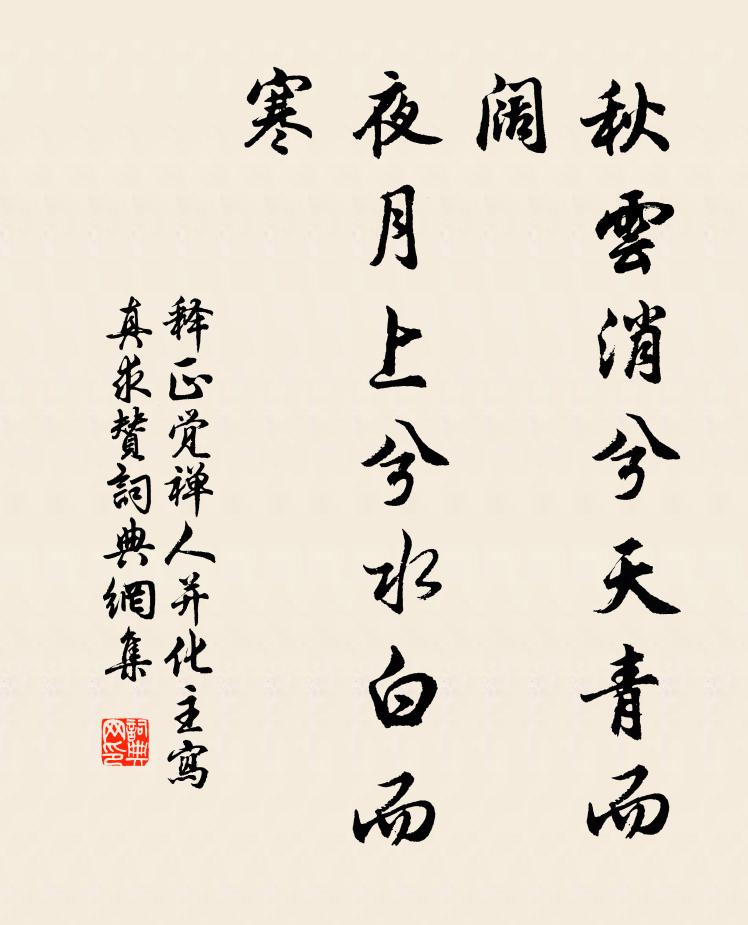 秋雲消兮天青而
阔
夜月上兮水白而
寒
释正觉禅人并化主寫
真求贊詞典網集
詞典
网印